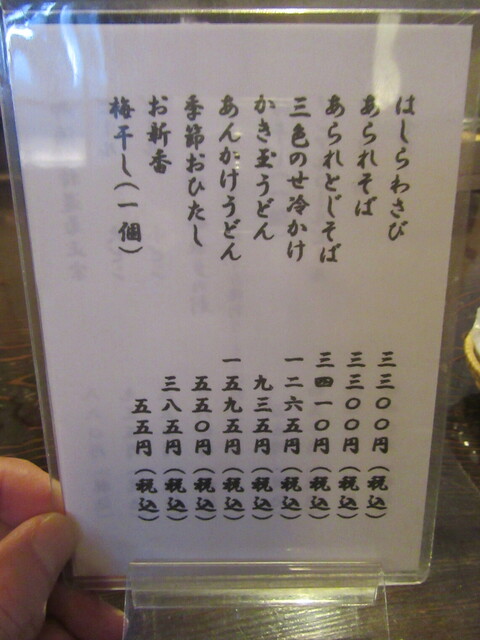 はしらわさび 三三〇〇円(税込)
あられそば 三三〇〇円(税込)
あられとじそば 三四一〇円(税込)
三色のせ冷かけ 一二六五円(税込)
かき玉うどん 九三五円(税込)
あんかけうどん 一五九五円(税込)
季節おひたし 五五〇円(税込)
お新香 三八五円(税込)
梅干し(一個) 五五円(税込)